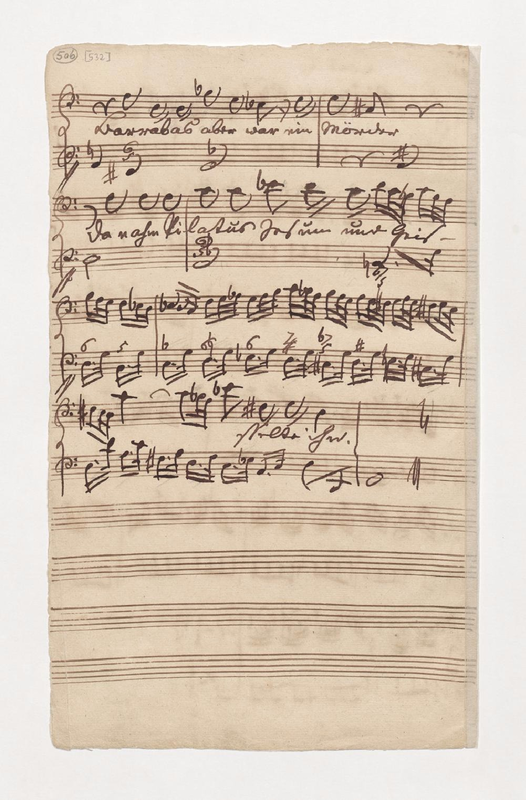 506 [532]
Barrabas aber war ein Mörder
da nahm Pilatus Jesum und Geis-
6 5 6 6 6 7 67 5
selte ihn.